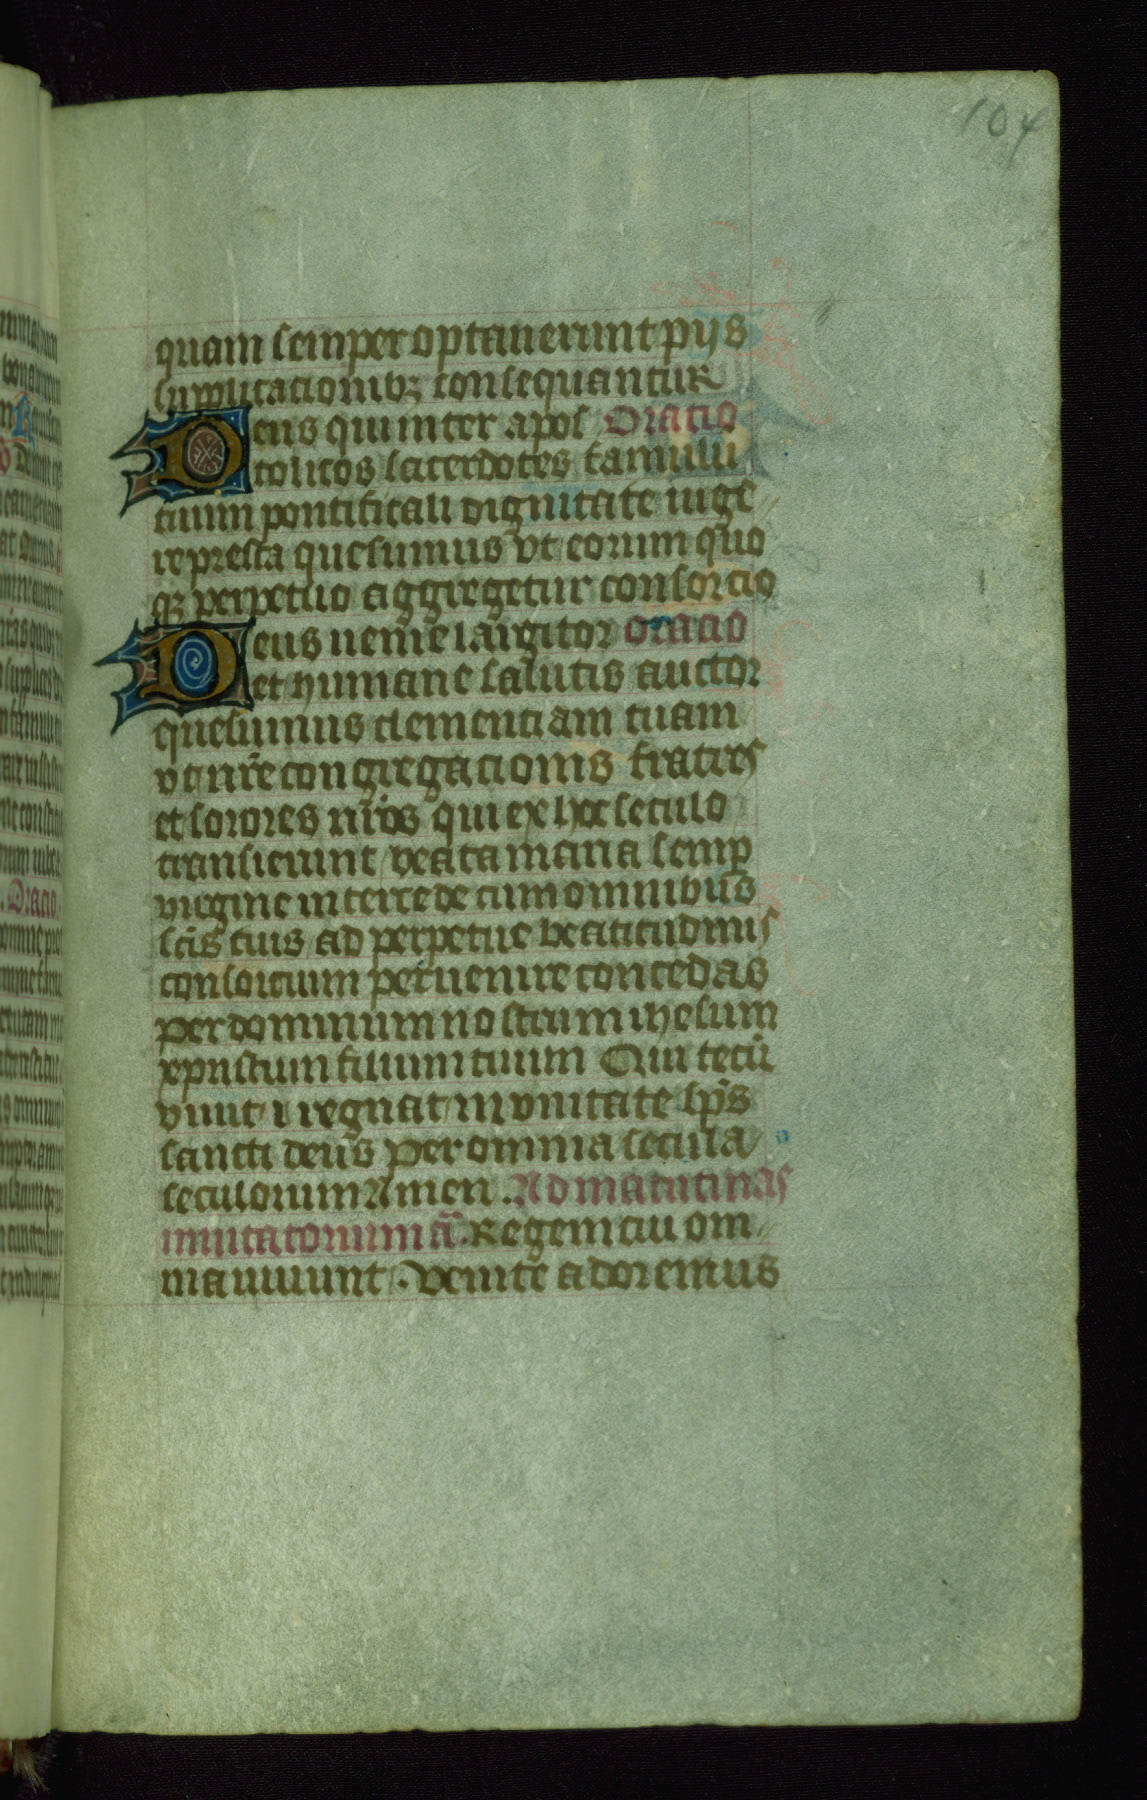 104
quam semper optauerunt pijs
supplicacionibꝫ consequantur
Deus qui inter apos Oratio
tolicos sacerdotes famulū
tuum pontificali dignitate uige
represta quesumus vt eorum quo
qꝫ perpetuo aggregetur consorcio
Deus uenie largitor oracio
et humane salutis auctor
quesumus clementiam tuam
vt nr̄e congregacionis fratres
et sorores nr̄os qui ex hoc seculo
transierunt beata maria semp
virgine intercede cum omnibus
sc̄is tuis ad perpetue beatitudinis
consorcium peruenire concedas
per dominum nostrum ihesum
xpristum filium tuum Qui tecū
viuit ⁊ regnat in vnitate sp̄s
sancti deus per omnia secula
seculorum Amen . Ad matutinas
inuitatorium ā. Regem cui om
nia uiuunt . venite adoremus